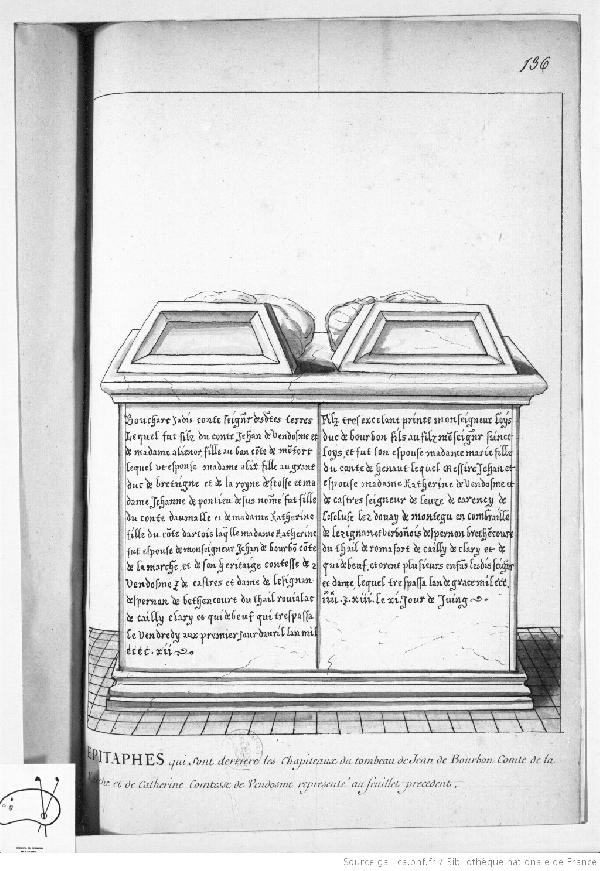 136
Bouchart Jadis conte seigñr desdtes terres
Lequel fut filz du conte Jehan de Vendosme et
de madame alienor fille au ban côte de môfort
lequel ut espouse madame alix fille au grant
duc de bretaigne et de la royne descosse et ma
dame Jehanne de pontieu desus nome fut fille
du conte daumalle et de madame Katherine
fille du côte dartois laqlle madame Katherine
fut espouse de monseigneur Jehan de bourbô côte
de la marche et de son heritaige contesse de
Vendosme & de castres et dame de lesignan
despernan de bethencourt du thail
de cailly clary et qui debeuf qui trespassa
le Vendredy aux premier Jour dauril lan mil
cccc. xii
Filz tres excelant prince monseigneur loys
duc de bourbon fils au filz mõseigñr sainct
loys, et fut son espouse madame marie fille
du conte de henaut lequel Messire Jehan et
espouse madame Katherine de Vendosme et
de castres seigneur de leuze de carency de
lescluse lez douay de montegu en combraille
de lezignan et despernon brethecourt
du thail de romafort de cailly de clary et de
qui debeuf, et orent plusieurs enfãs lesdis seigñr
et dame lequel trespassa lan de grace mil ccc.
iiii. & xiii. le xi. Jour de Juing
EPITAPHES qui sont derriere les Chapiteaux du tombeau de Jean de Bourbon Comte de la
Marche et de Catherine Comtesse de Vendosme representé au feuillet precedent.
Source gallica.bnf.fr / Bibliothèque nationale de France